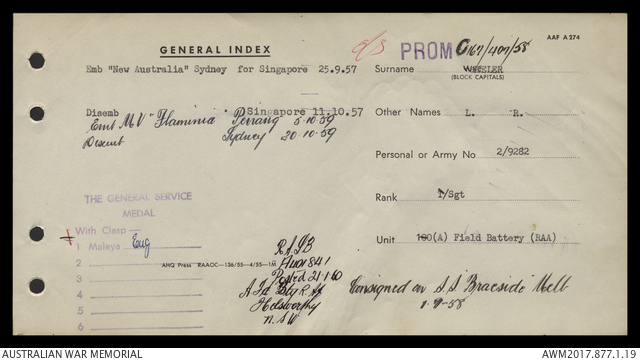 AAF A274
GENERAL INDEX
PROM C167/407/58
Emb "New Australia" Sydney for Singapore 25.9.57
Surname WHEELER
(BLOCK CAPITALS)
Disemb Singapore 11.10.57
Other Names L. R.
Emb M.V "Flaminia" Penang 5.10.59
Disemb Sydney 20.10.59
Personal or Army No 2/9282
THE GENERAL SERVICE
MEDAL
Rank T/Sgt
With Clasp
1 Malaya Eng
2
3
4
5
6
Unit 100(A) Field Battery (RAA)
AHQ Press RAAOC—136/55—4/55—1M
A Fd Regt
Holsworthy
N.S.W
Consigned on S.S "Braeside" Melb
1-9-58
AUSTRALIAN WAR MEMORIAL
AWM2017.877.1.19